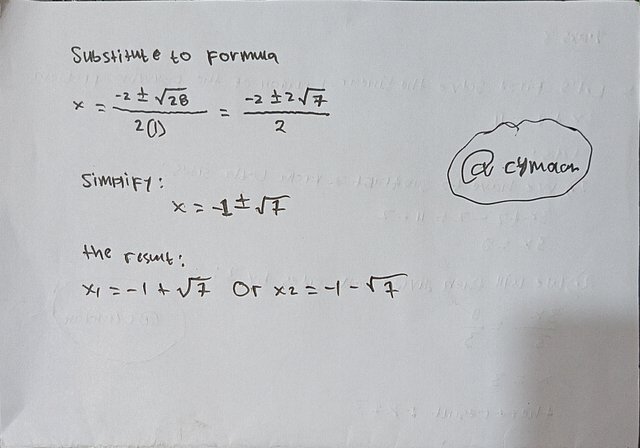 Substitute to Formula
x = -2 ± √28 / 2(1) = -2 ± 2√7 / 2
@cymaan
Simplify:
x = -1 ± √7
the result:
x1 = -1 + √7 Or x2 = -1 - √7